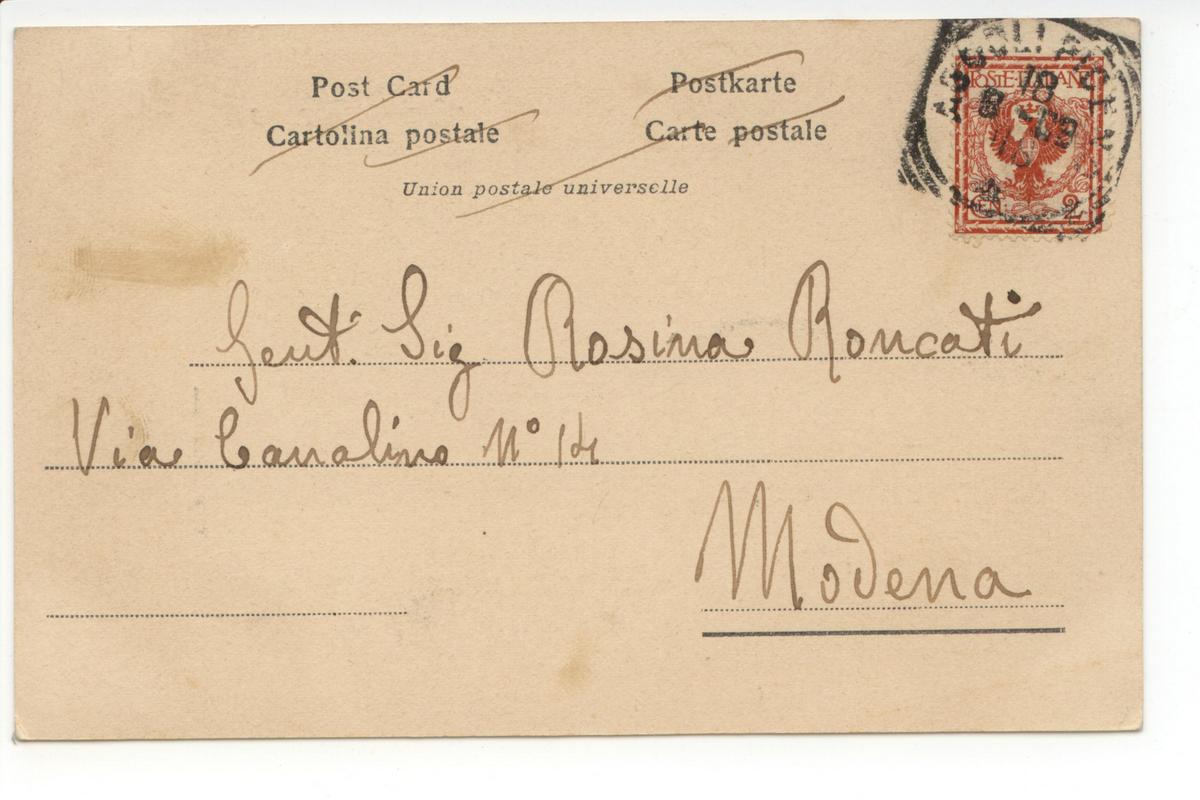 Post Card
Postkarte
Cartolina postale
Carte postale
Union postale universelle
POSTE ITALIANE
2
18
Gent. Sig Rosina Roncati
Via Canalino N° 14
Modena